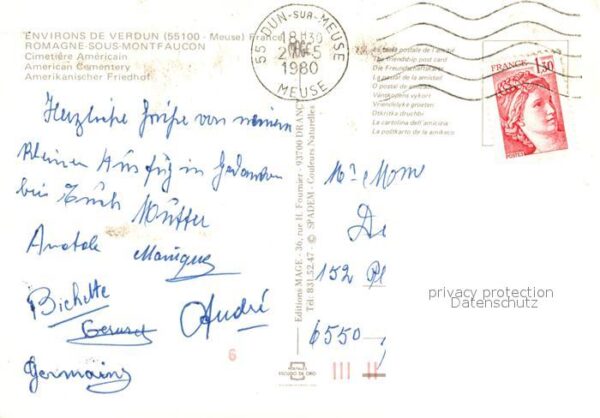 ENVIRONS DE VERDUN (55100 - Meuse) France
ROMAGNE-SOUS-MONTFAUCON
Cimetière Américain
American Cementery
Amerikanischer Friedhof
55 DUN-SUR-MEUSE
18H30
5
1980
MEUSE
La carte postale de l'amitié
The friendship post card
Die Freundschaftskarte
La postal de la amistad
O postal da amizade
Vänskapens vykort
Vriendelijke groeten
La cartolina dell'amicizia
FRANCE 1,30
POSTES
Herzliche Grüße von meinem
kleinen Ausflug in Gedanken
bei Euch Mutter
Anatole Monique
Bichette
Gérard André
Germaine
Editions MAGE - 36, rue H. Fournier - 93700 DRANCY
Tél: 831.52.47 - © SPADEM - Couleurs Naturelles
152 Pl
6550
privacy protection
Datenschutz
6
III II
ESCUDO DE ORO